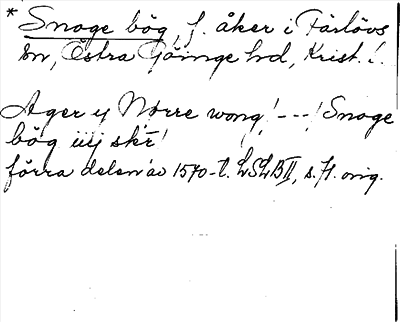 * Snoge bög, f. åker i Färlövs
sn, Östra Göinge hd, Krist. l.
Ager y Nörre wong! ---! Snoge
bög iiij skr̄!
förra delen av 1570-t. LSLB II, s. 71. orig.